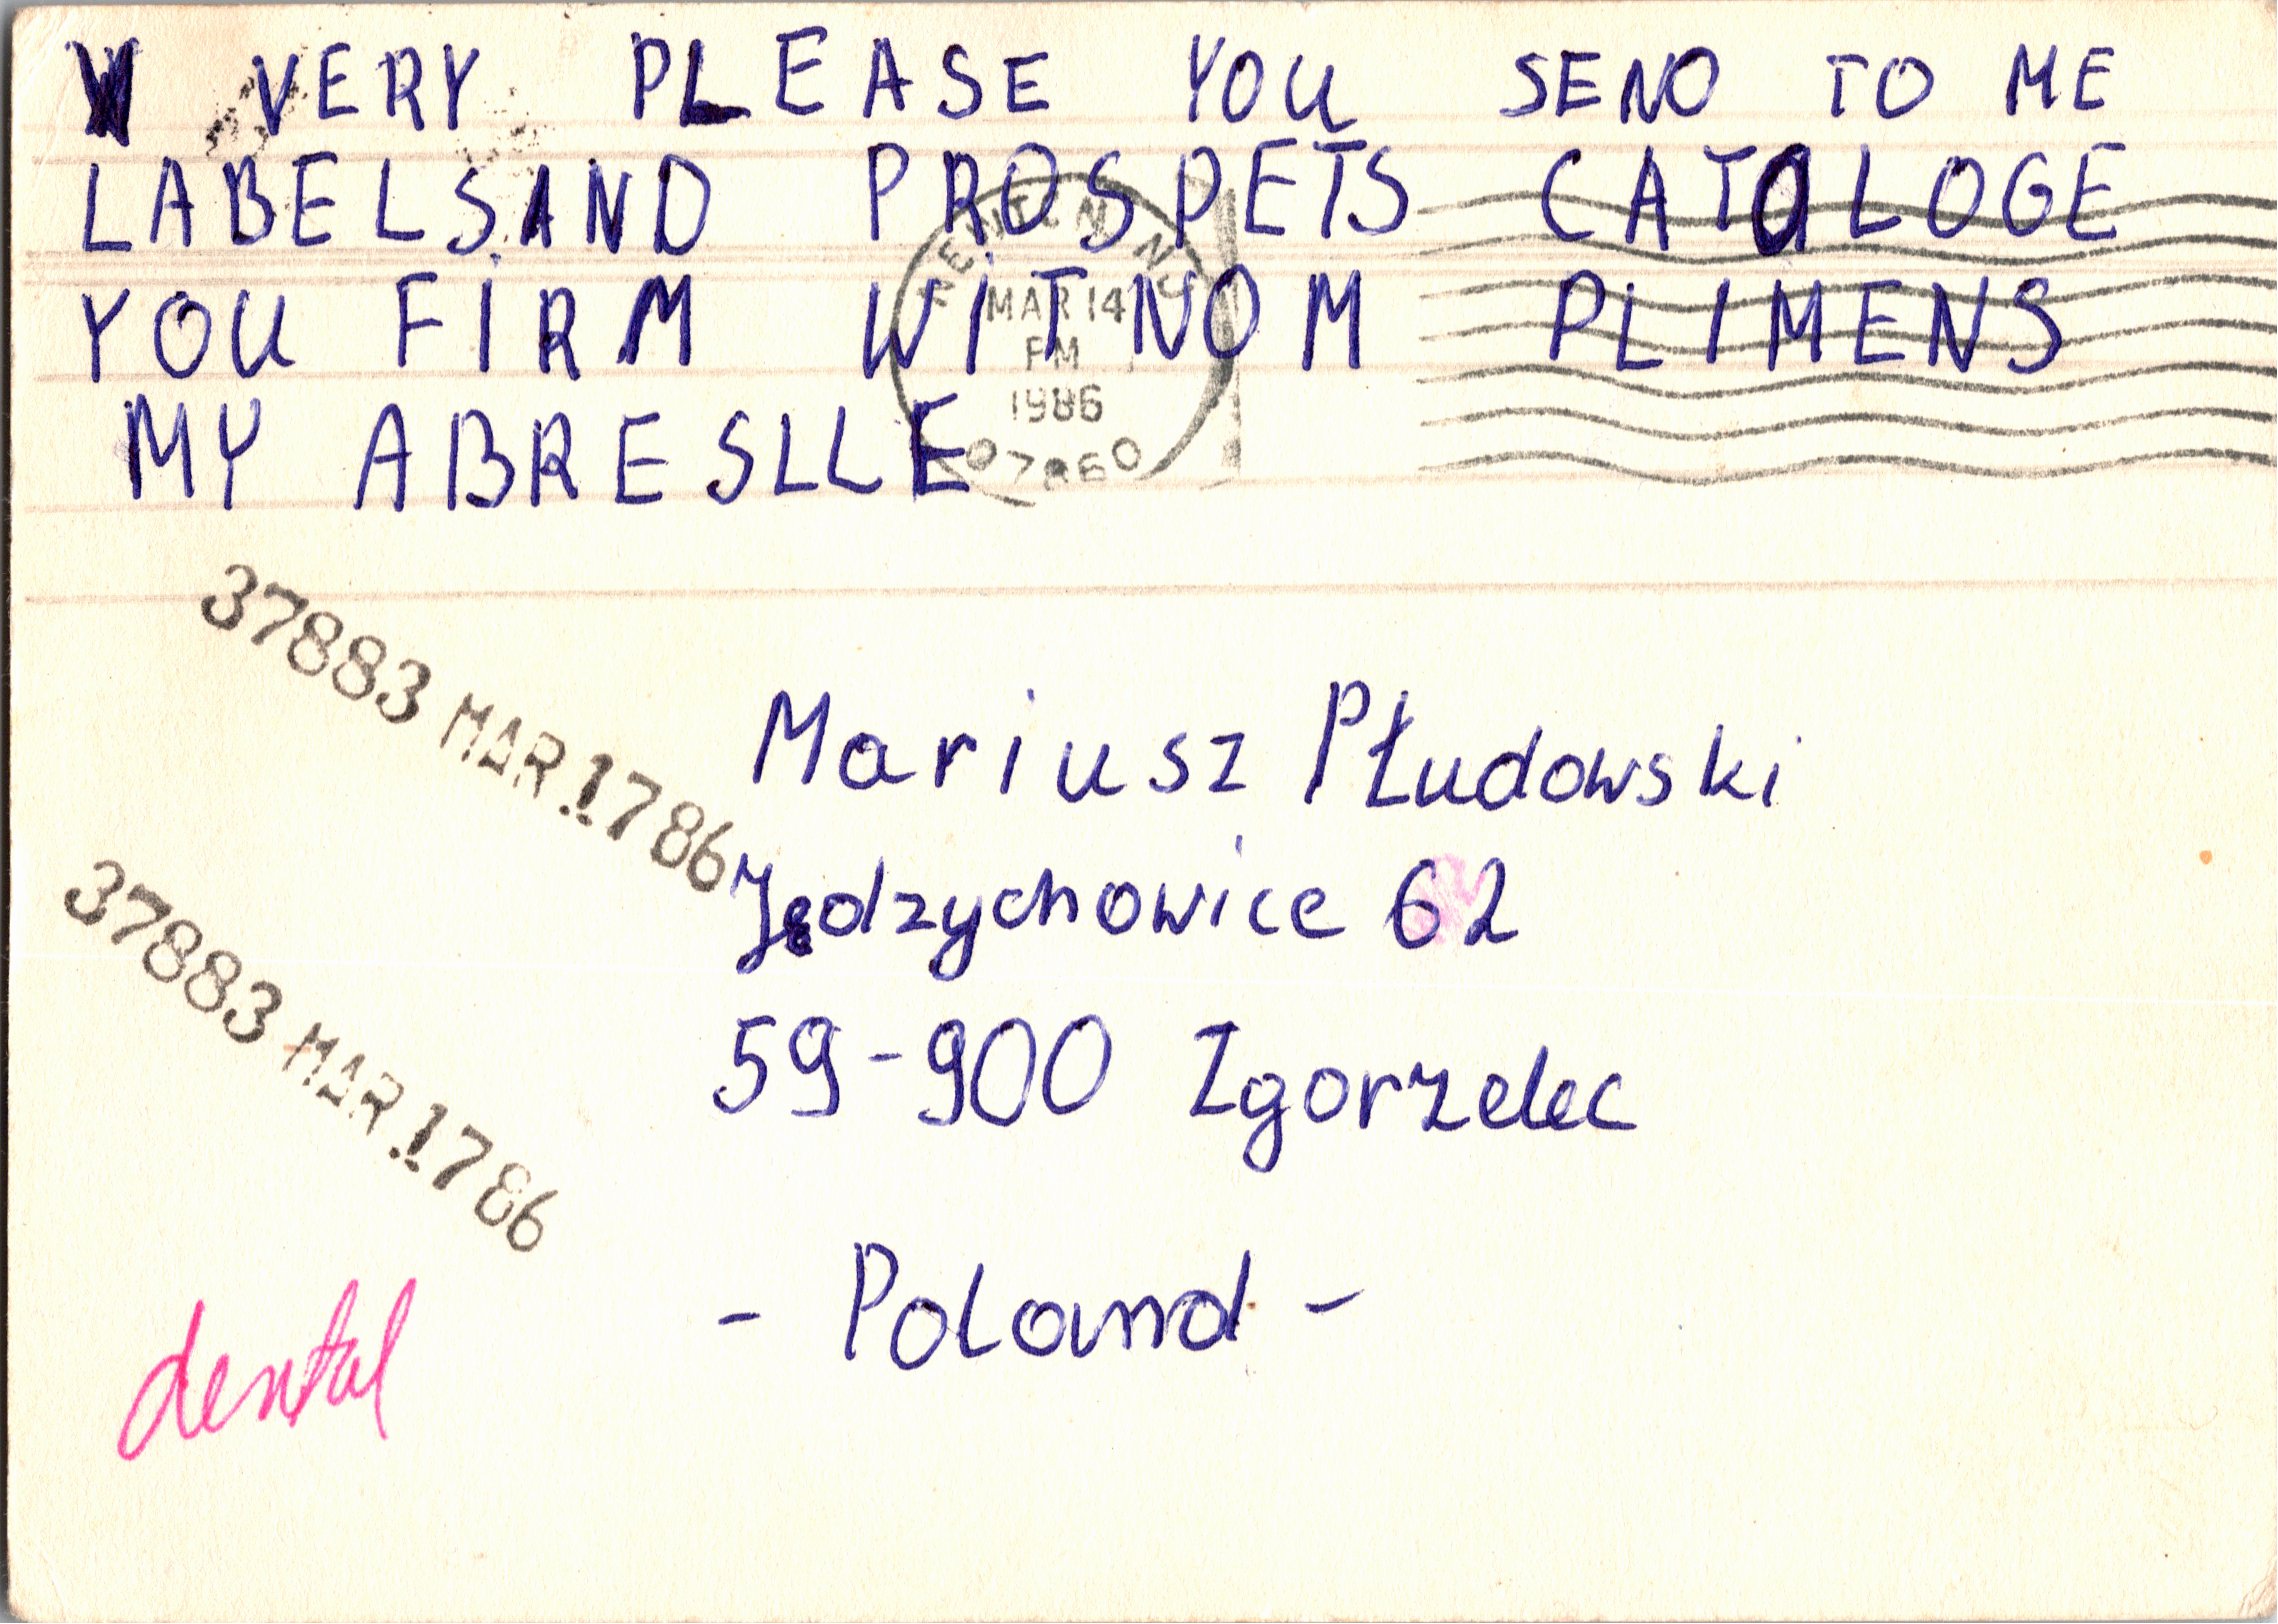 VERY PLEASE YOU SEND TO ME
LABELSAND PROSPETS CATALOGE
YOU FIRM WITNOM PLIMENS
MY ABRESLLE
NEWTON NJ
MAR 14
PM
1986
07860
37883 MAR.1786
Mariusz Płudowski
Jędzychowice 62
37883 MAR.1786
59-900 Zgorzelec
- Poland -
dental